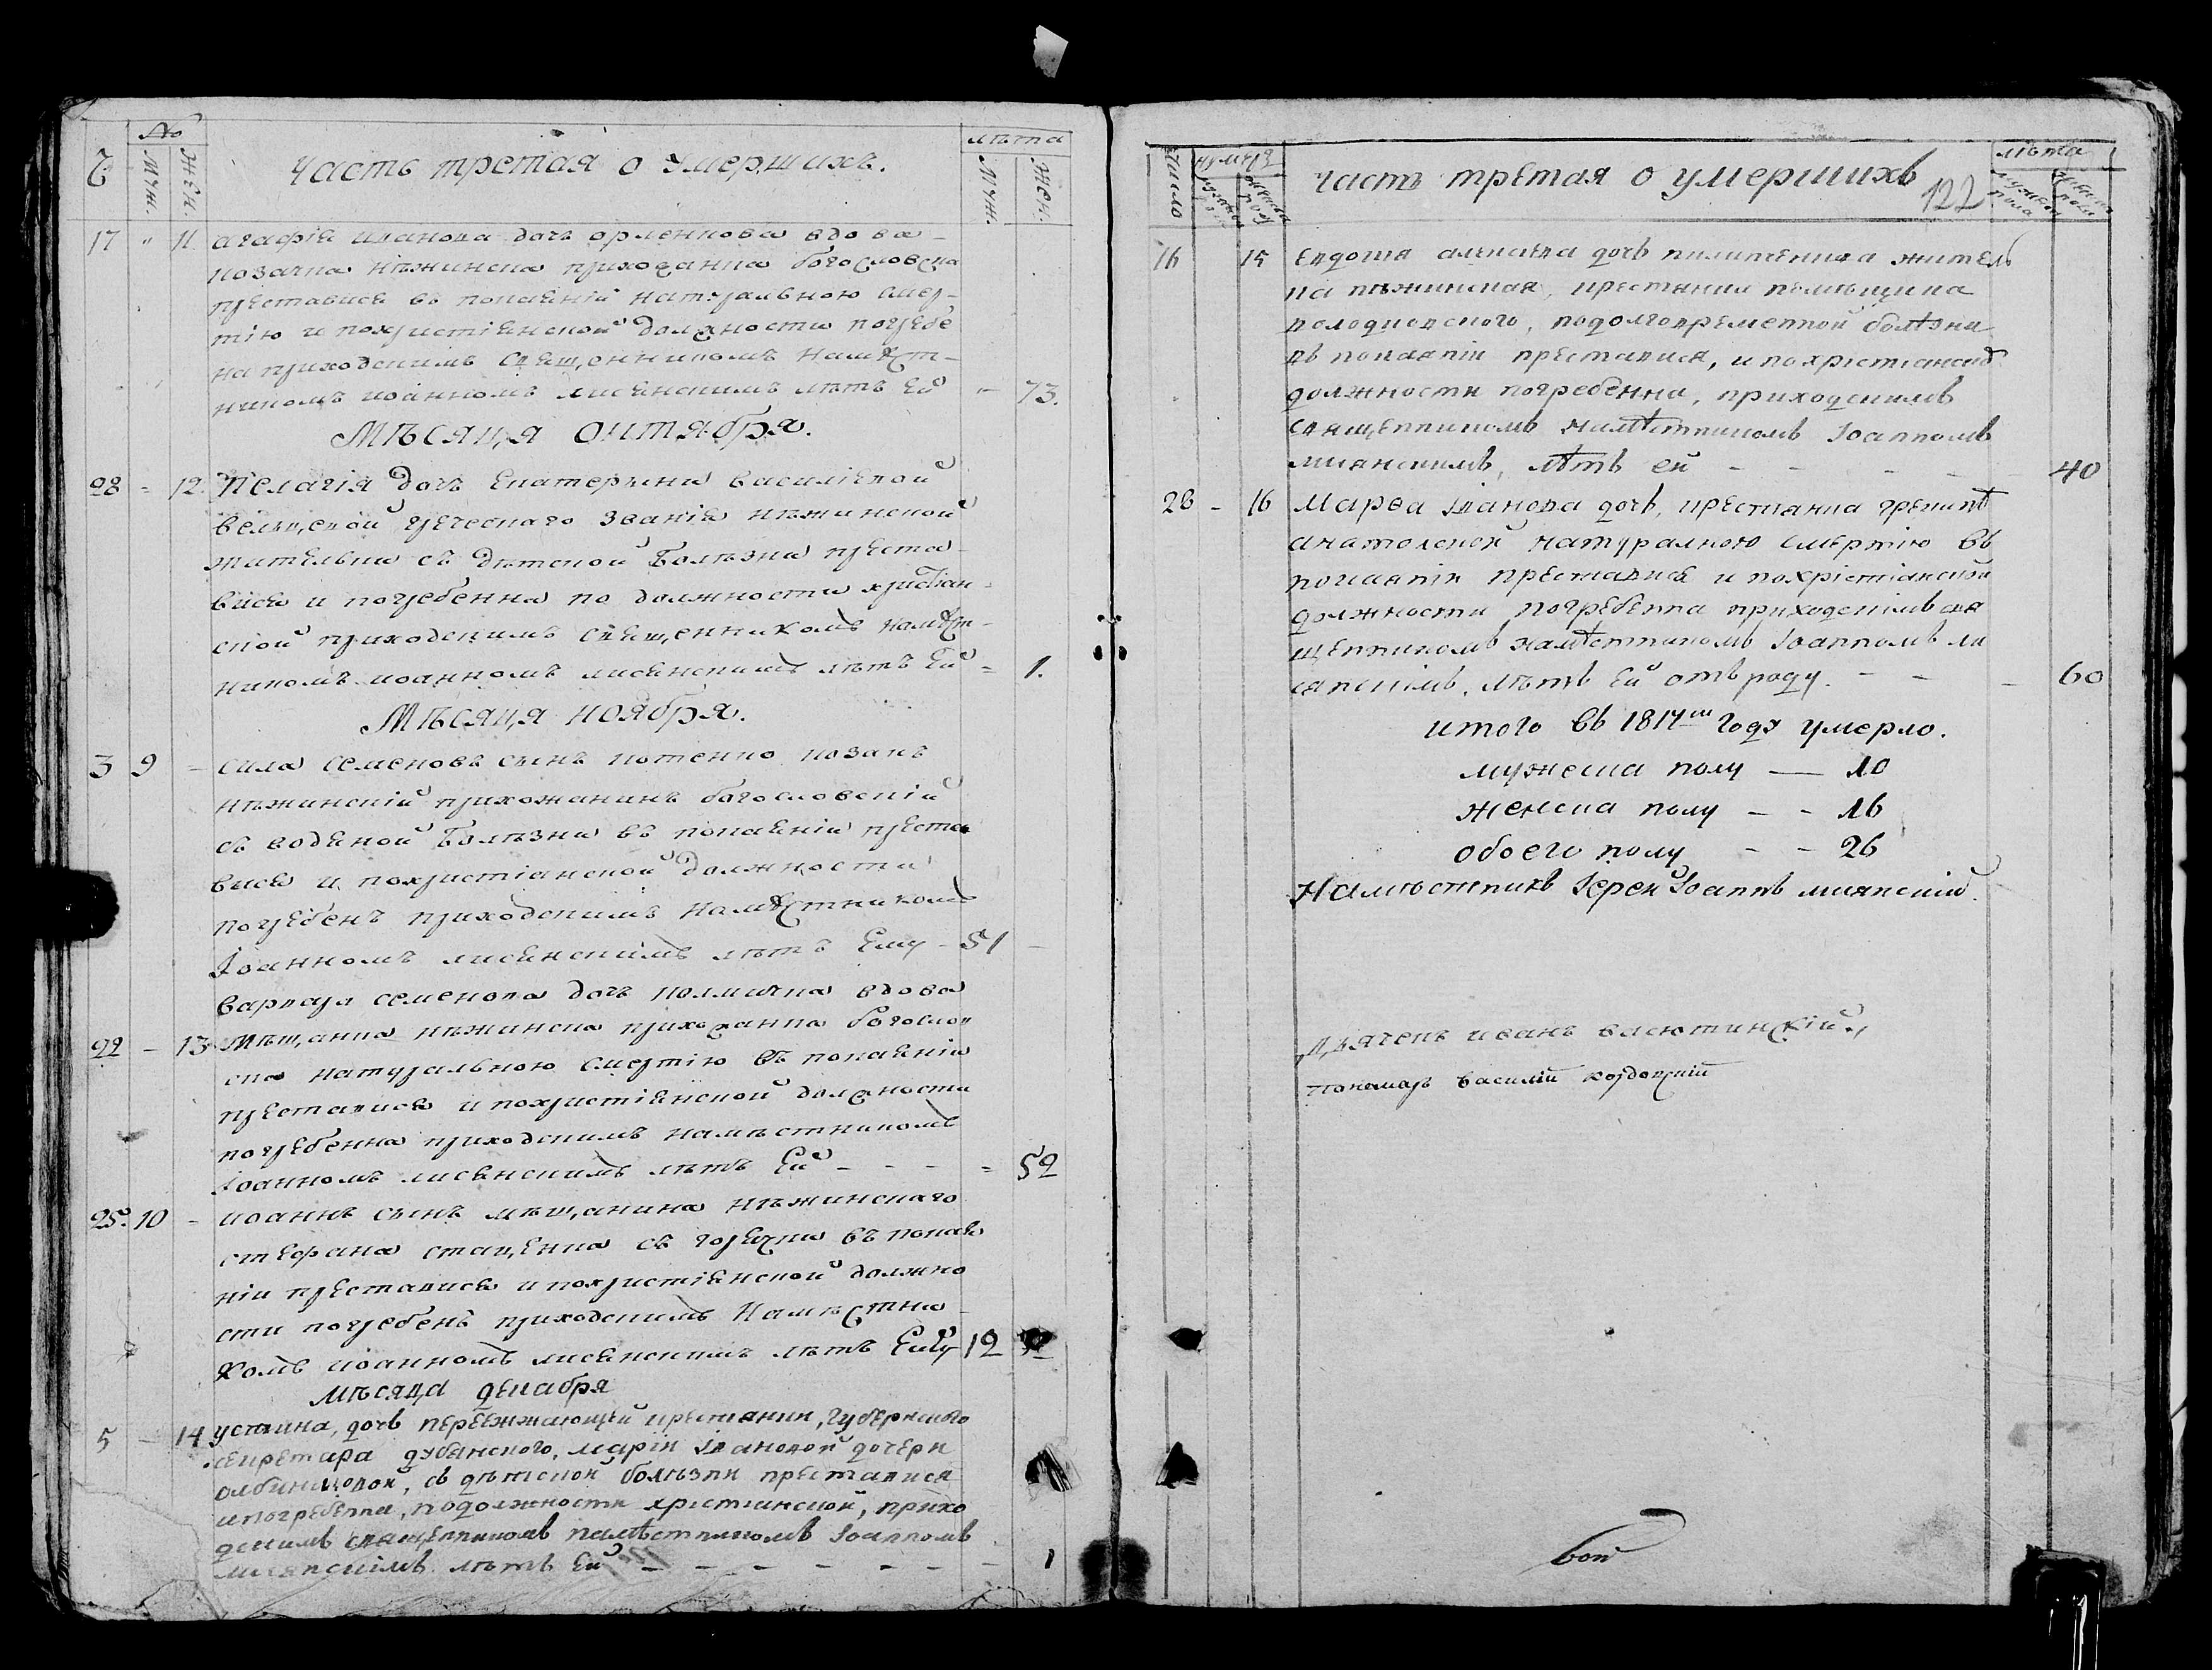 Ч. № Муж. Жен. Часть третая о умершихъ. лѣта Муж. Жен.
17 " 11 агафія иванова дочь орленкова вдова
козачка нѣжинска прихожанка богословска
преставися въ покаяніи натуральною смер-
тію и похристіянской должности погребе
на приходскимъ священникомъ намѣст-
никомъ иоанномъ лисянскимъ лѣтъ Ей - 73.
Мѣсяця октября.
28 - 12. Пелагія дочь Екатерины василіевой
греческаго званія нѣжинской
жительки съ дѣтской болѣзни преста-
вися и погребенна по должности христіан-
ской приходскимъ священникомъ намѣст-
никомъ иоанномъ лисянскимъ лѣтъ Ей - 1.
Мѣсяця ноября.
3 9 - сила семеновъ сынъ котенко козакъ
нѣжинскій прихожанинъ богословскій
съ водяной болѣзни въ покаяніи преста
вися и похристіанской должности
погребенъ приходскимъ намѣстникомъ
Іоанномъ лисянскимъ лѣтъ Ему - 51 -
варвара семенова дочь вдова
22 - 13 Мѣщанка нѣжинска прихожанка богослов
ска натуральною смертію въ покаяніи
преставися и похристіянской должности
погребенна приходскимъ намѣстникомъ
Іоанномъ лисянскимъ лѣтъ Ей - - - = 52
25. 10 - иоаннъ сынъ мѣщанина нѣжинскаго
стефана стаценка съ горячки въ покая
ніи преставися и похристіянской должно
сти погребенъ приходскимъ Намѣстни
комъ иоанномъ лисянскимъ лѣтъ Ему 12
мѣсяца декабря
5 - 14 устина, дочь переежжающей крестянки, губернского
секретара дубянского, маріи Івановой дочери
съ дѣтской болѣзни преставися
и погребенна, подолжности христіанской, прихо
дскимъ священникомъ намѣстникомъ Іоанномъ
лисянскімъ лѣтъ Ей - - - - - - - 1
число нумеръ часть третая о умершихъ 122 лѣта мужеска пола женска пола
16 15 Евдокія алексѣева дочь жител
ка нѣжинская, крестянка помѣщика
володковского, подолговременной болѣзни
въ покаяніи преставися, и похристіанской
должности погребенна, приходскимъ
священникомъ намѣстникомъ Іоанномъ
лисянскимъ, лѣтъ ей - - - - 40
26 - 16 Марѳа Іванова дочь, крестянка
натуралною смертію въ
покаяніи преставися и похрістіанской
должности погребенна приходскімъ свя
щенникомъ намѣстникомъ Іоанномъ ли
сянскімъ, лѣтъ Ей отъ роду. - - - 60
итого въ 1817мъ году умерло.
мужеска полу — 10
женска полу - - 16
обоего полу - - 26
Намѣстникъ Іерей Іоаннъ лисянский.
Дячекъ иванъ васютинскій,
Понамарь василій